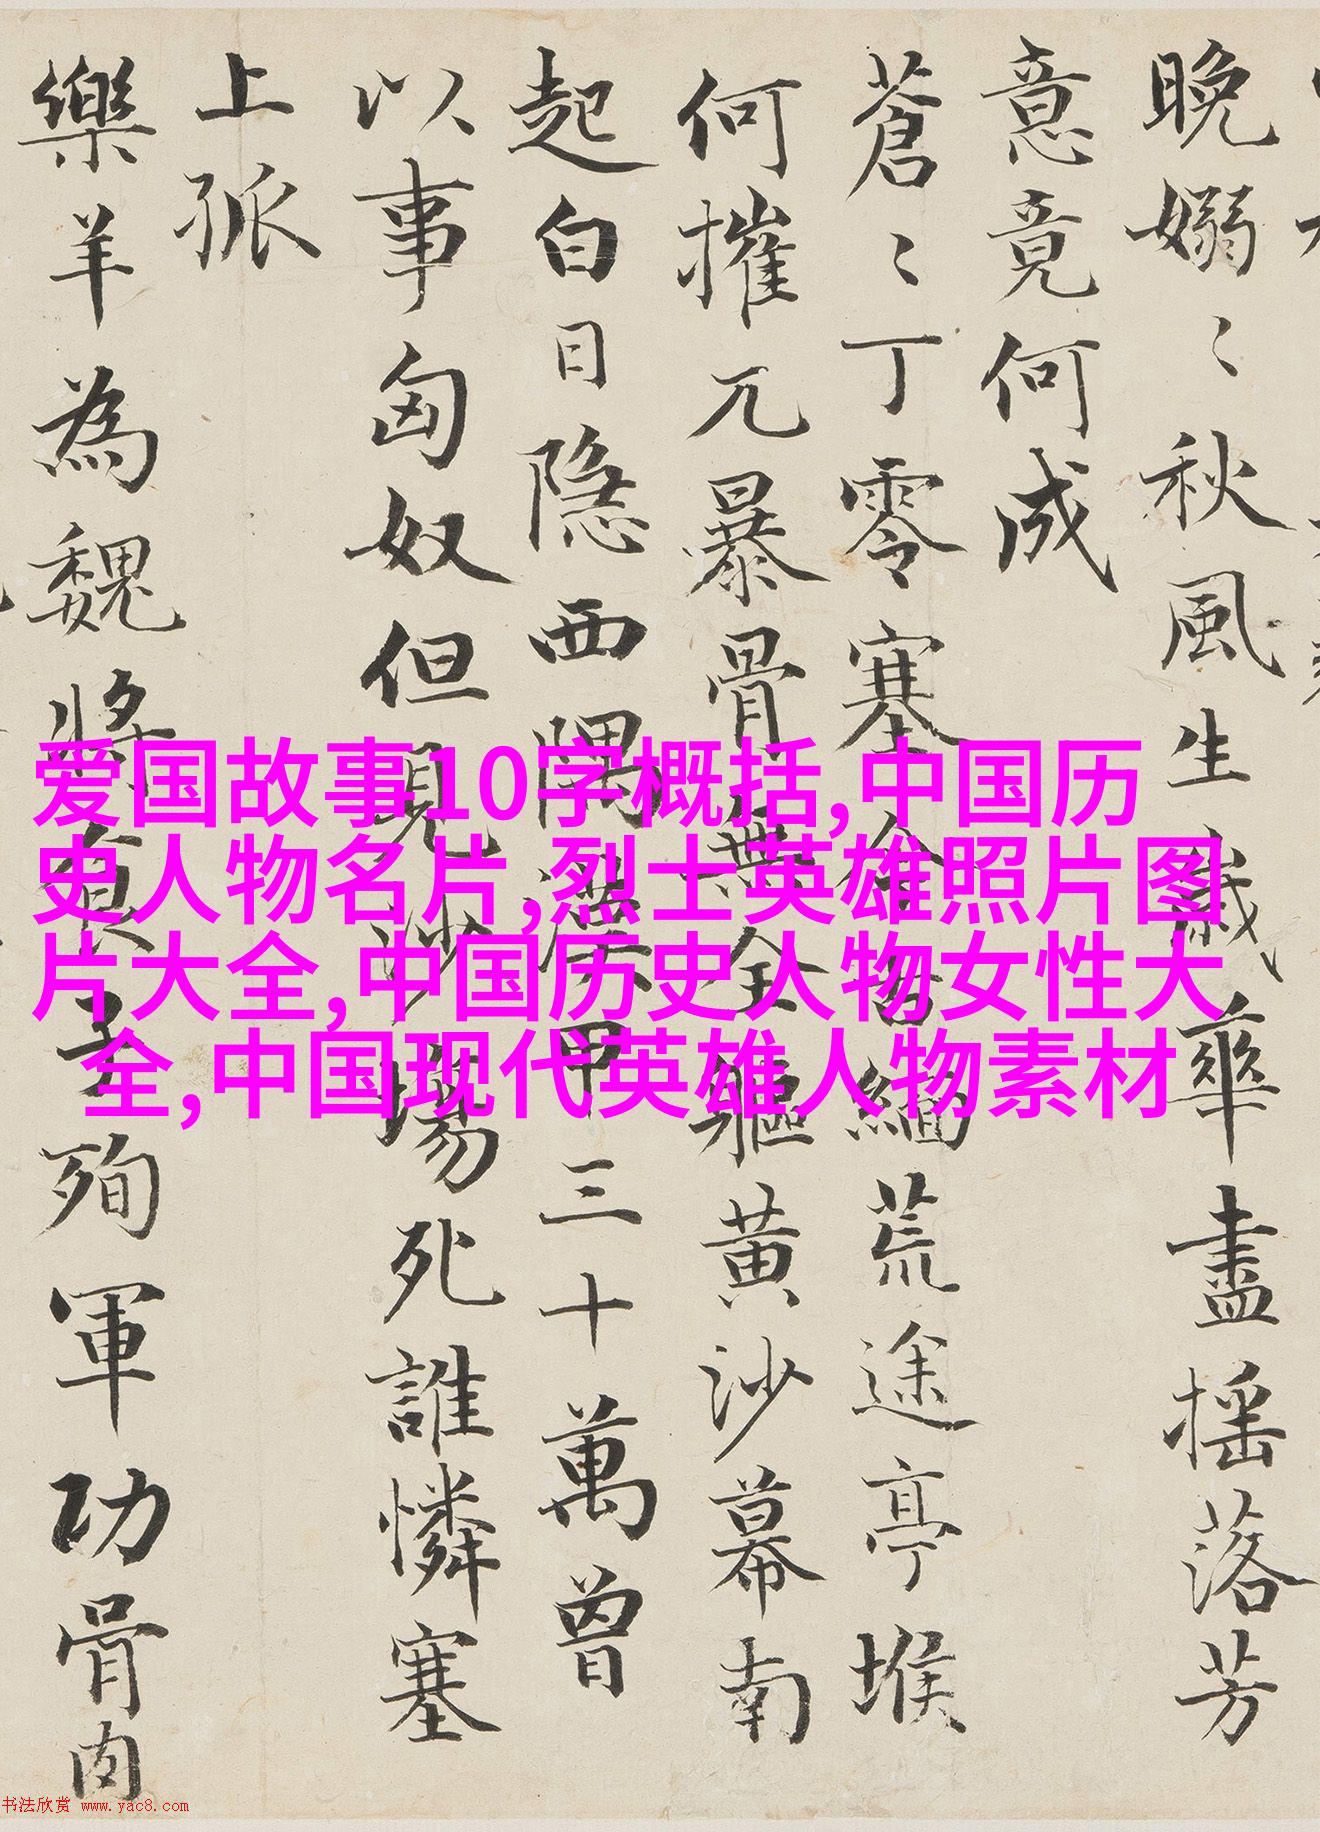 晚嫋〻秋風生歲華盡搖落芳
意竟何成
蒼〻丁零塞今古緬荒途亭堠
何摧兀暴骨無全軀黃沙幕南
起白日隐西隅漢甲三十萬曾
以事匈奴但見沙場死誰憐塞
上孤
樂羊為魏將食子殉軍功骨肉
爱国故事10字概括,中国历
史人物名片,烈士英雄照片图
片大全,中国历史人物女性大
全,中国现代英雄人物素材
书法欣赏 www.yac8.com